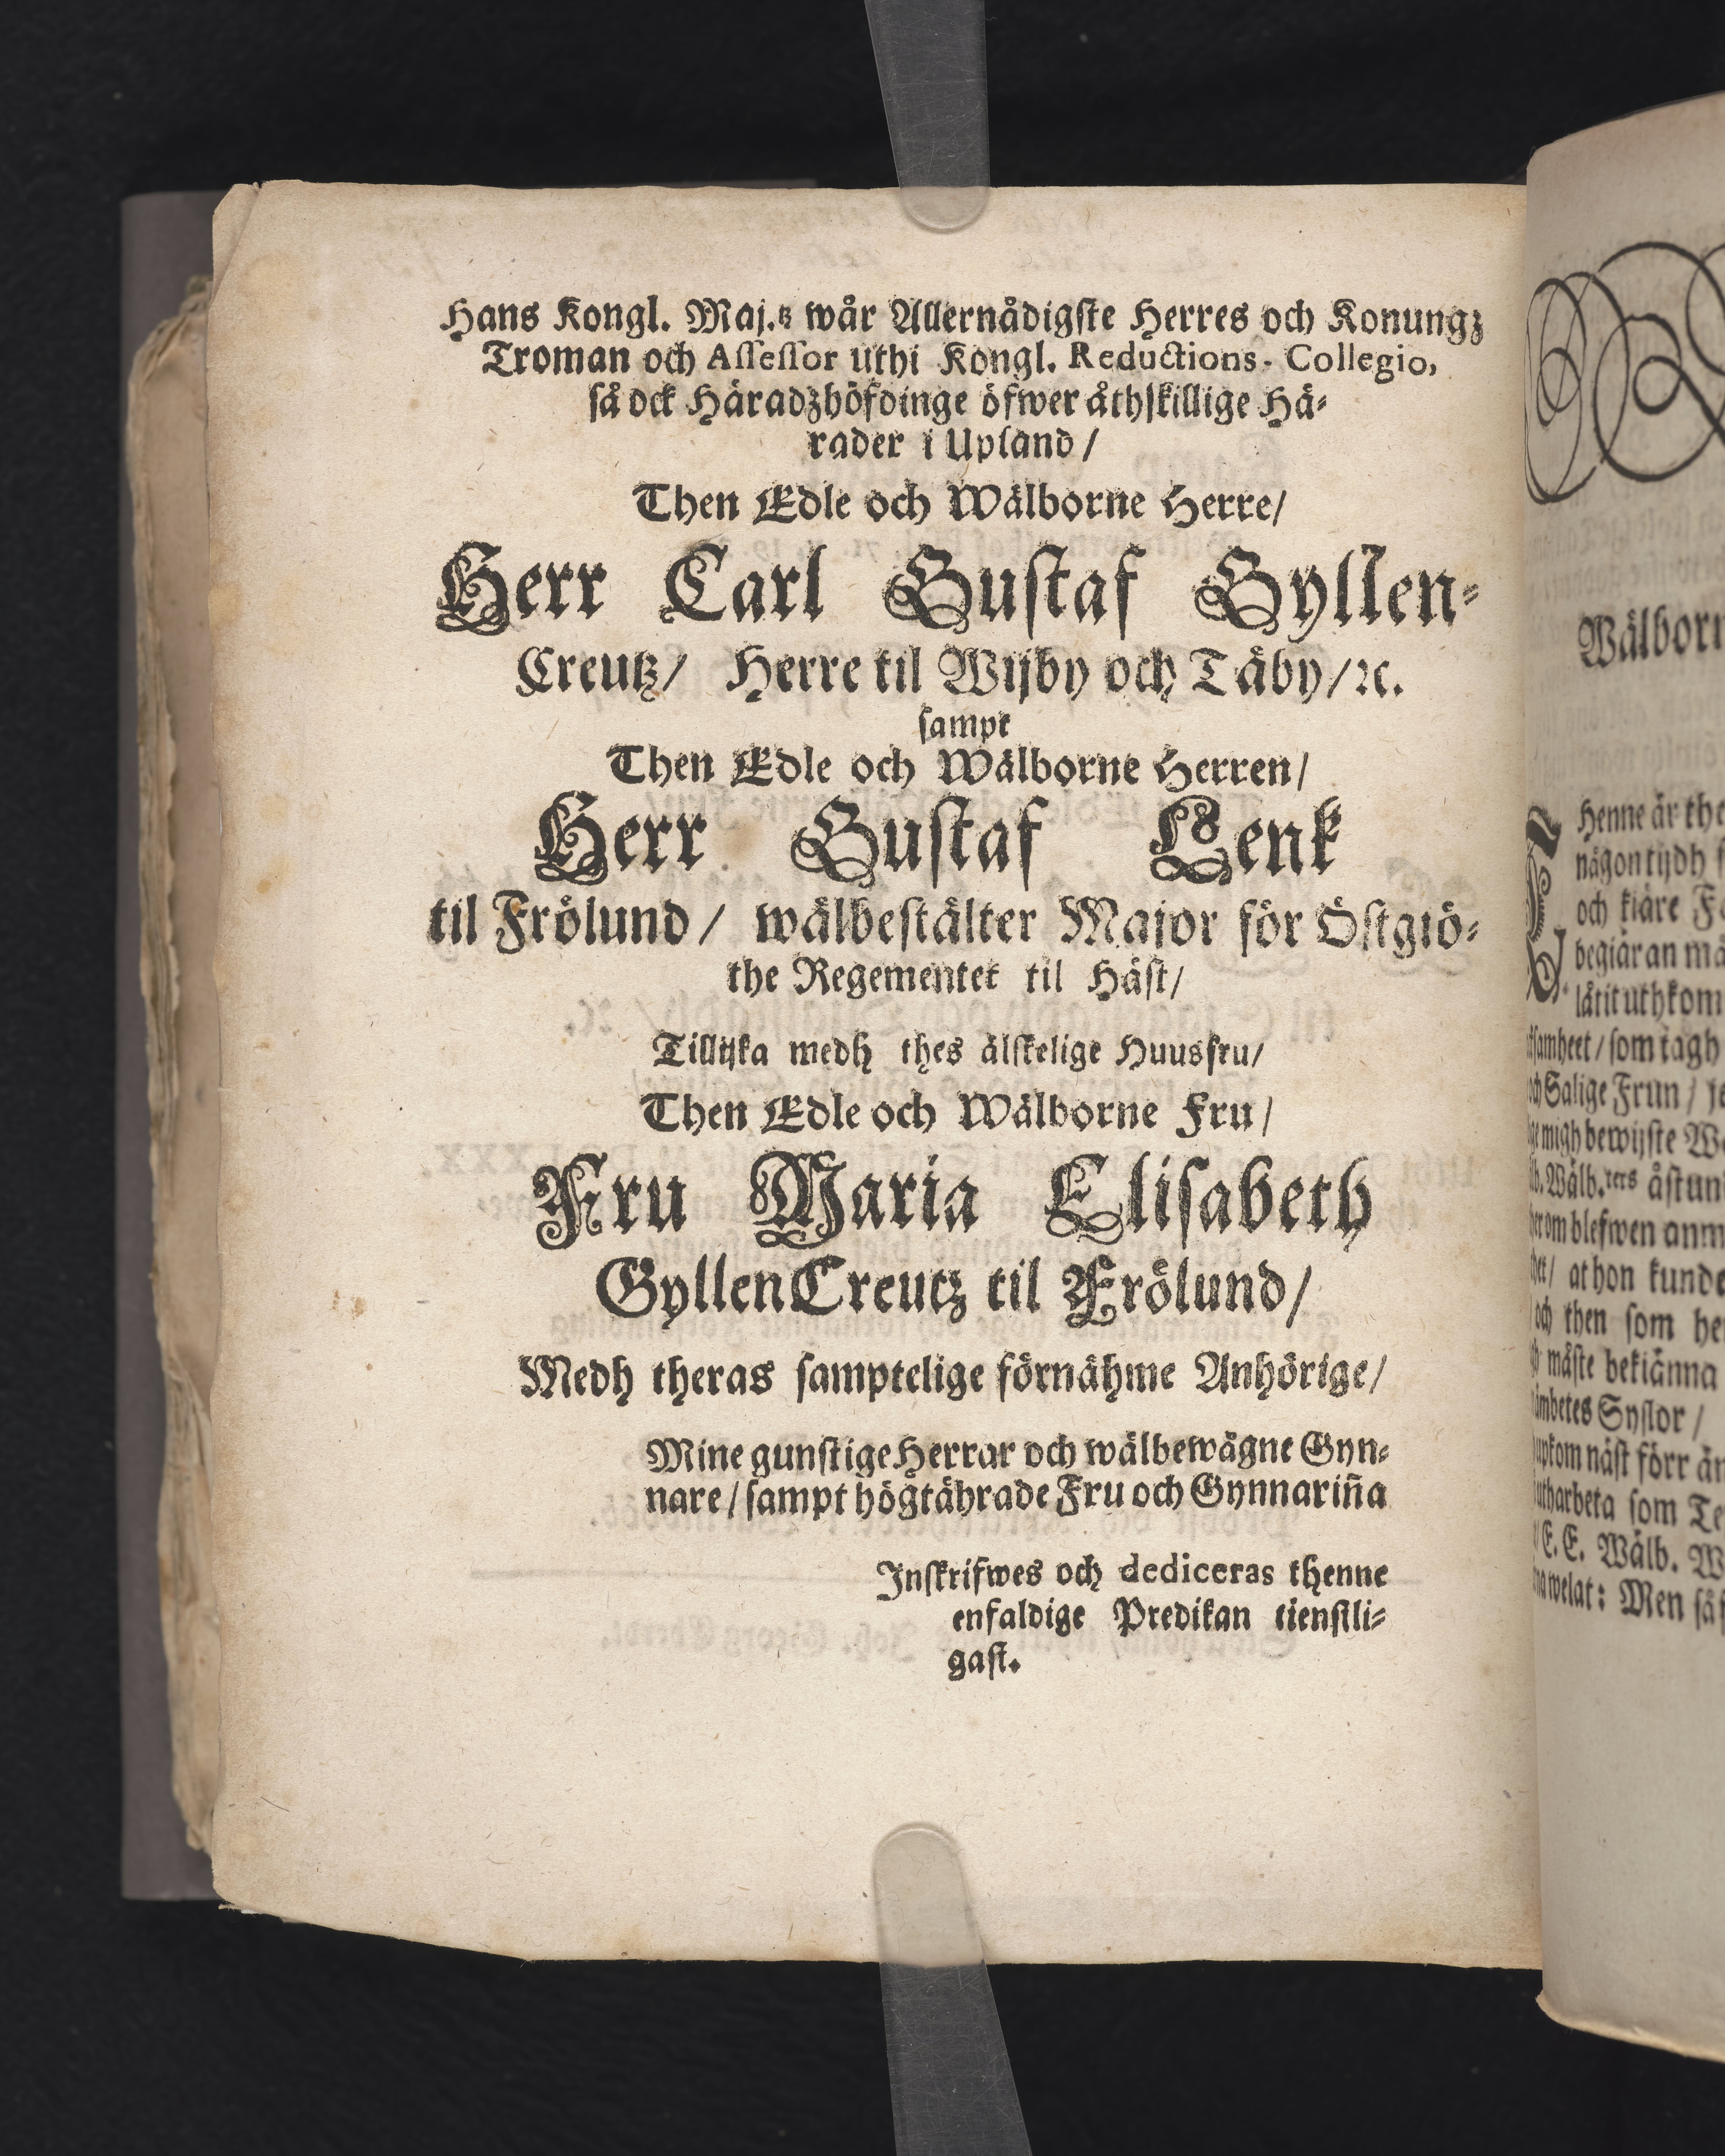 Hans Kongl. Maj.tz wår Allernådigste Herres och Konungz
Troman och Assessor uthi Kongl. Reductions-Collegio,
så ock Häradzhöfdinge öfwer åthskillige Hä-
rader i Upland/
Then Edle och Wälborne Herre/
Herr Carl Gustaf Gyllen-
Creutz/ Herre til Wijby och Täby/ꝛc.
sampt
Then Edle och Wälborne Herren/
Herr Gustaf Lenk
til Frölund/ wälbestälter Major för Östgiö-
the Regementet til Häst/
Tillijka medh thes älskelige Huusfru/
Then Edle och Wälborne Fru/
Fru Maria Elisabeth
GyllenCreutz til Frölund/
Medh theras samptelige förnähme Anhörige/
Mine gunstige Herrar och wälbewägne Gyn-
nare/sampt högtährade Fru och Gynnarin̄a
Inskrifwes och dediceras thenne
enfaldige Predikan tienstli-
gast.
Wälborn
Henne är the
någon tijdh
och kiäre
begiäran
låtit uthkom
som tagh
Salige Frun/
migh bewijste
Wälb.ters åstun
blefwen anm
at hon kunde
och then som
måste bekiänna
Syslor/
näst förr än
som Te
E. E. Wälb. W
welat: Men så